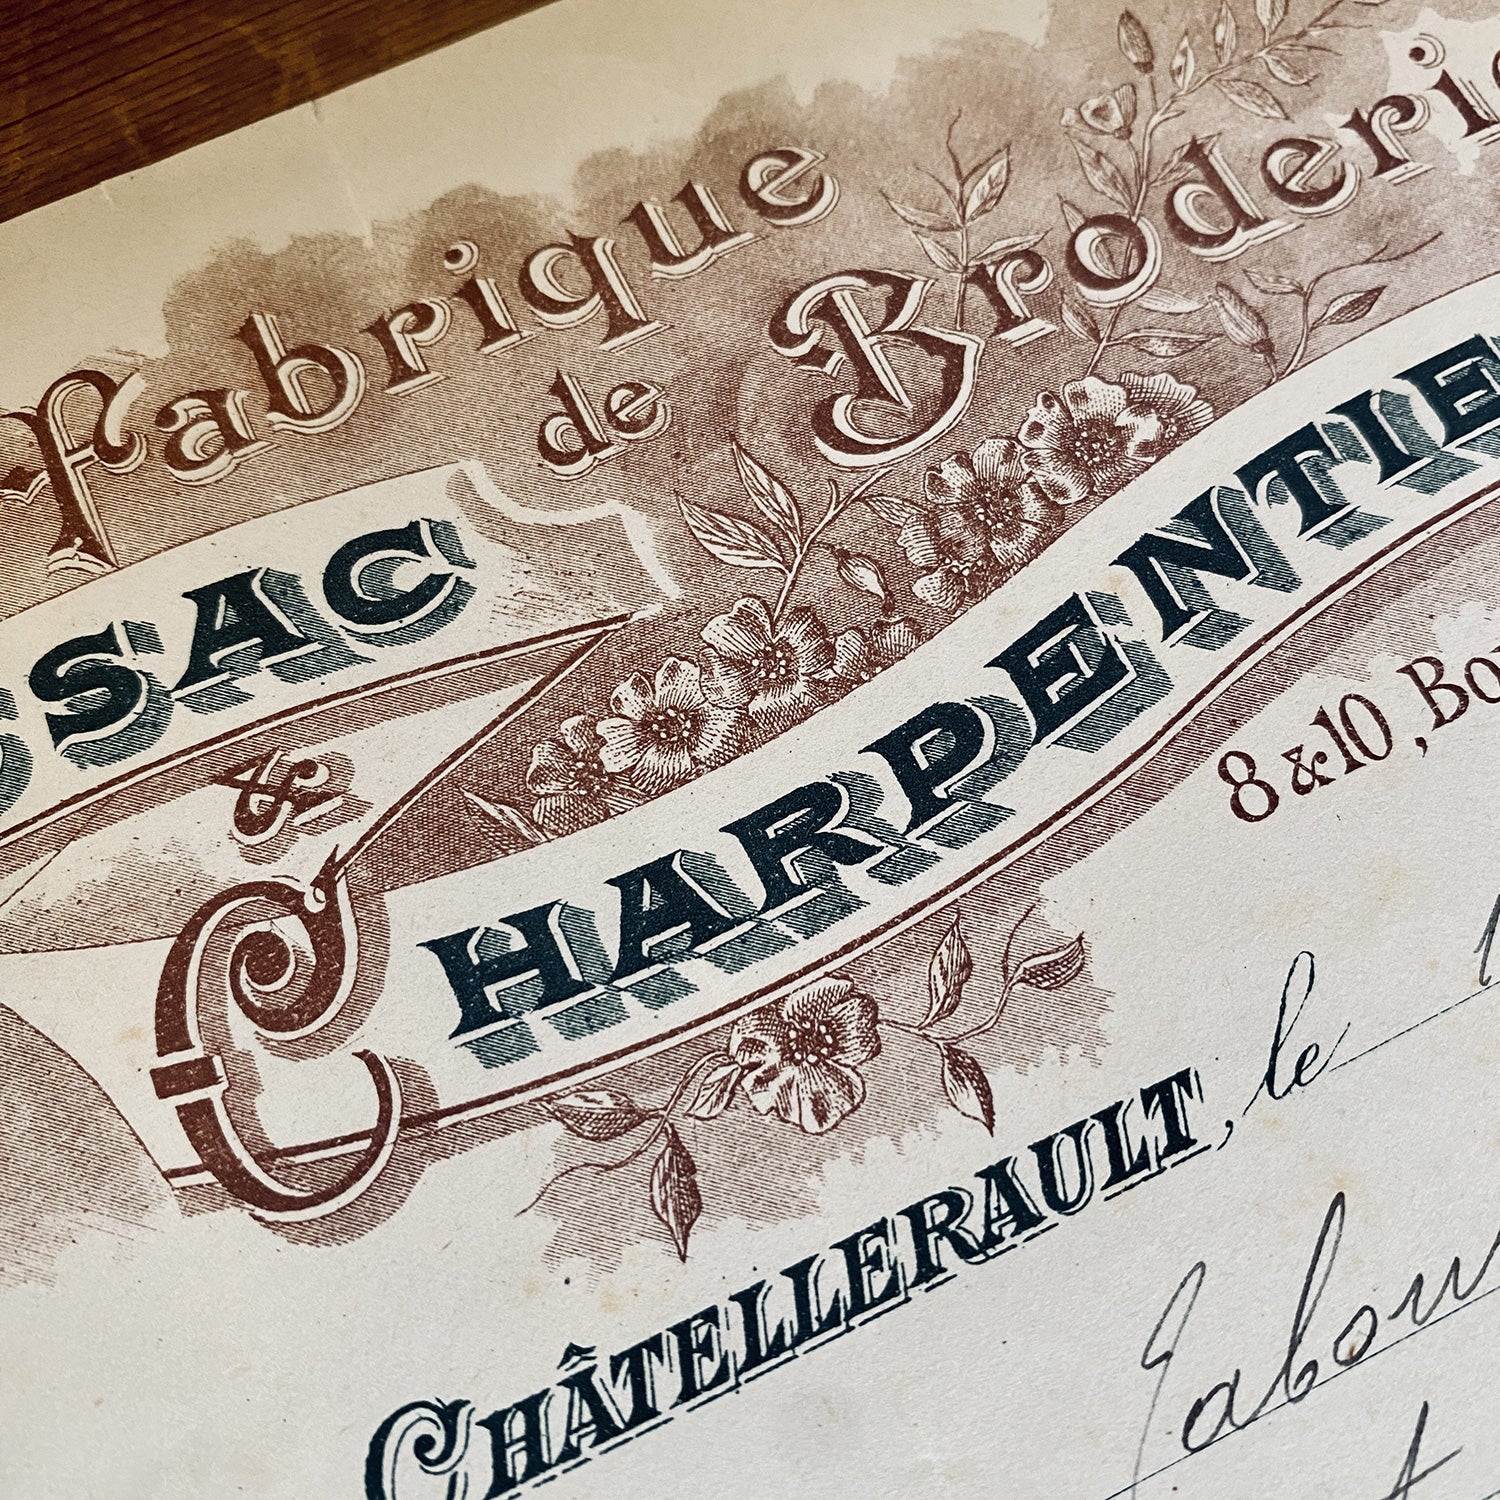 Fabrique
de Broderie
SSAC
&
CHARPENTIE
8 & 10, Bo
CHÂTELLERAULT, le